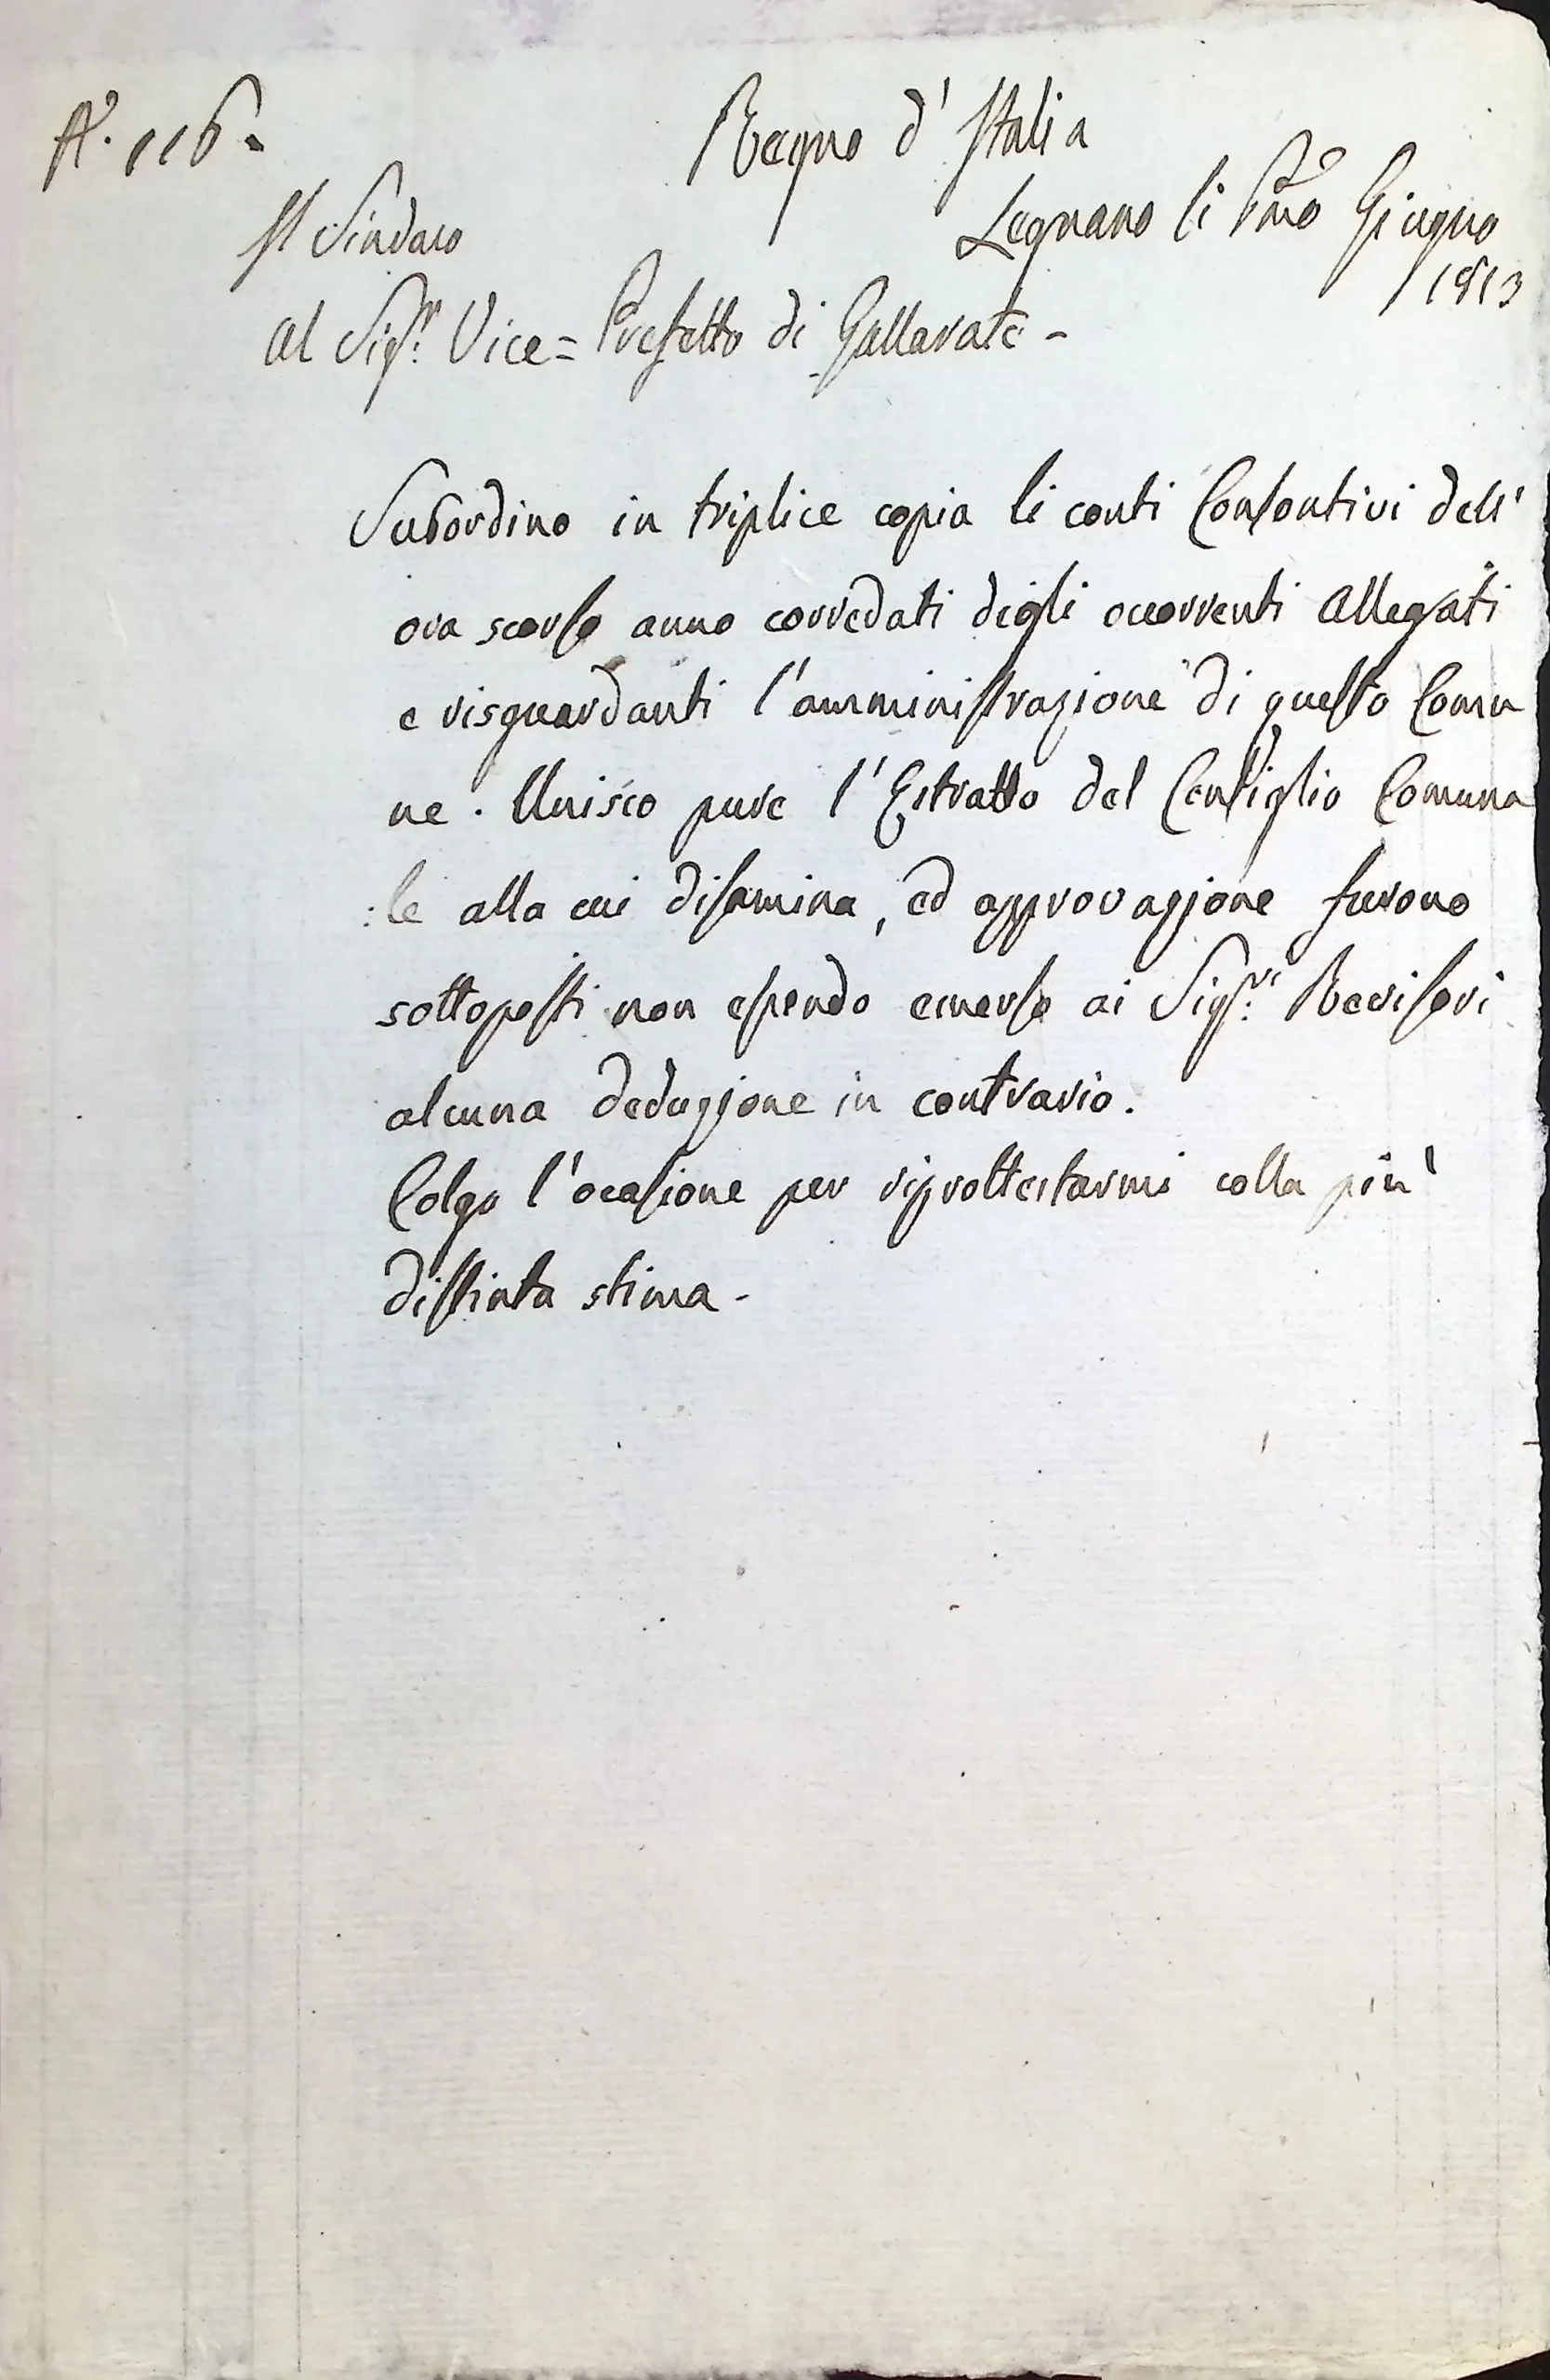 N°. 116.
Regno d'Italia
Legnano li Pmo Giugno
1813
Il Sindaco
Al Sigr. Vice= Prefetto di Gallarate -
Subordino in triplice copia li conti Consontivi dell'
ora scorso anno corredati degli occorrenti Allegati
e risguardanti l'amministrazione di questo Comu
ne. Unisco pure l'Estratto del Consiglio Comuna
:le alla cui disamina, ed approvazione furono
sottoposti non essendo emerso ai Sigri. Revisori
alcuna deduzione in contrario.
Colgo l'ocasione per riprottestarmi colla più
distinta stima -